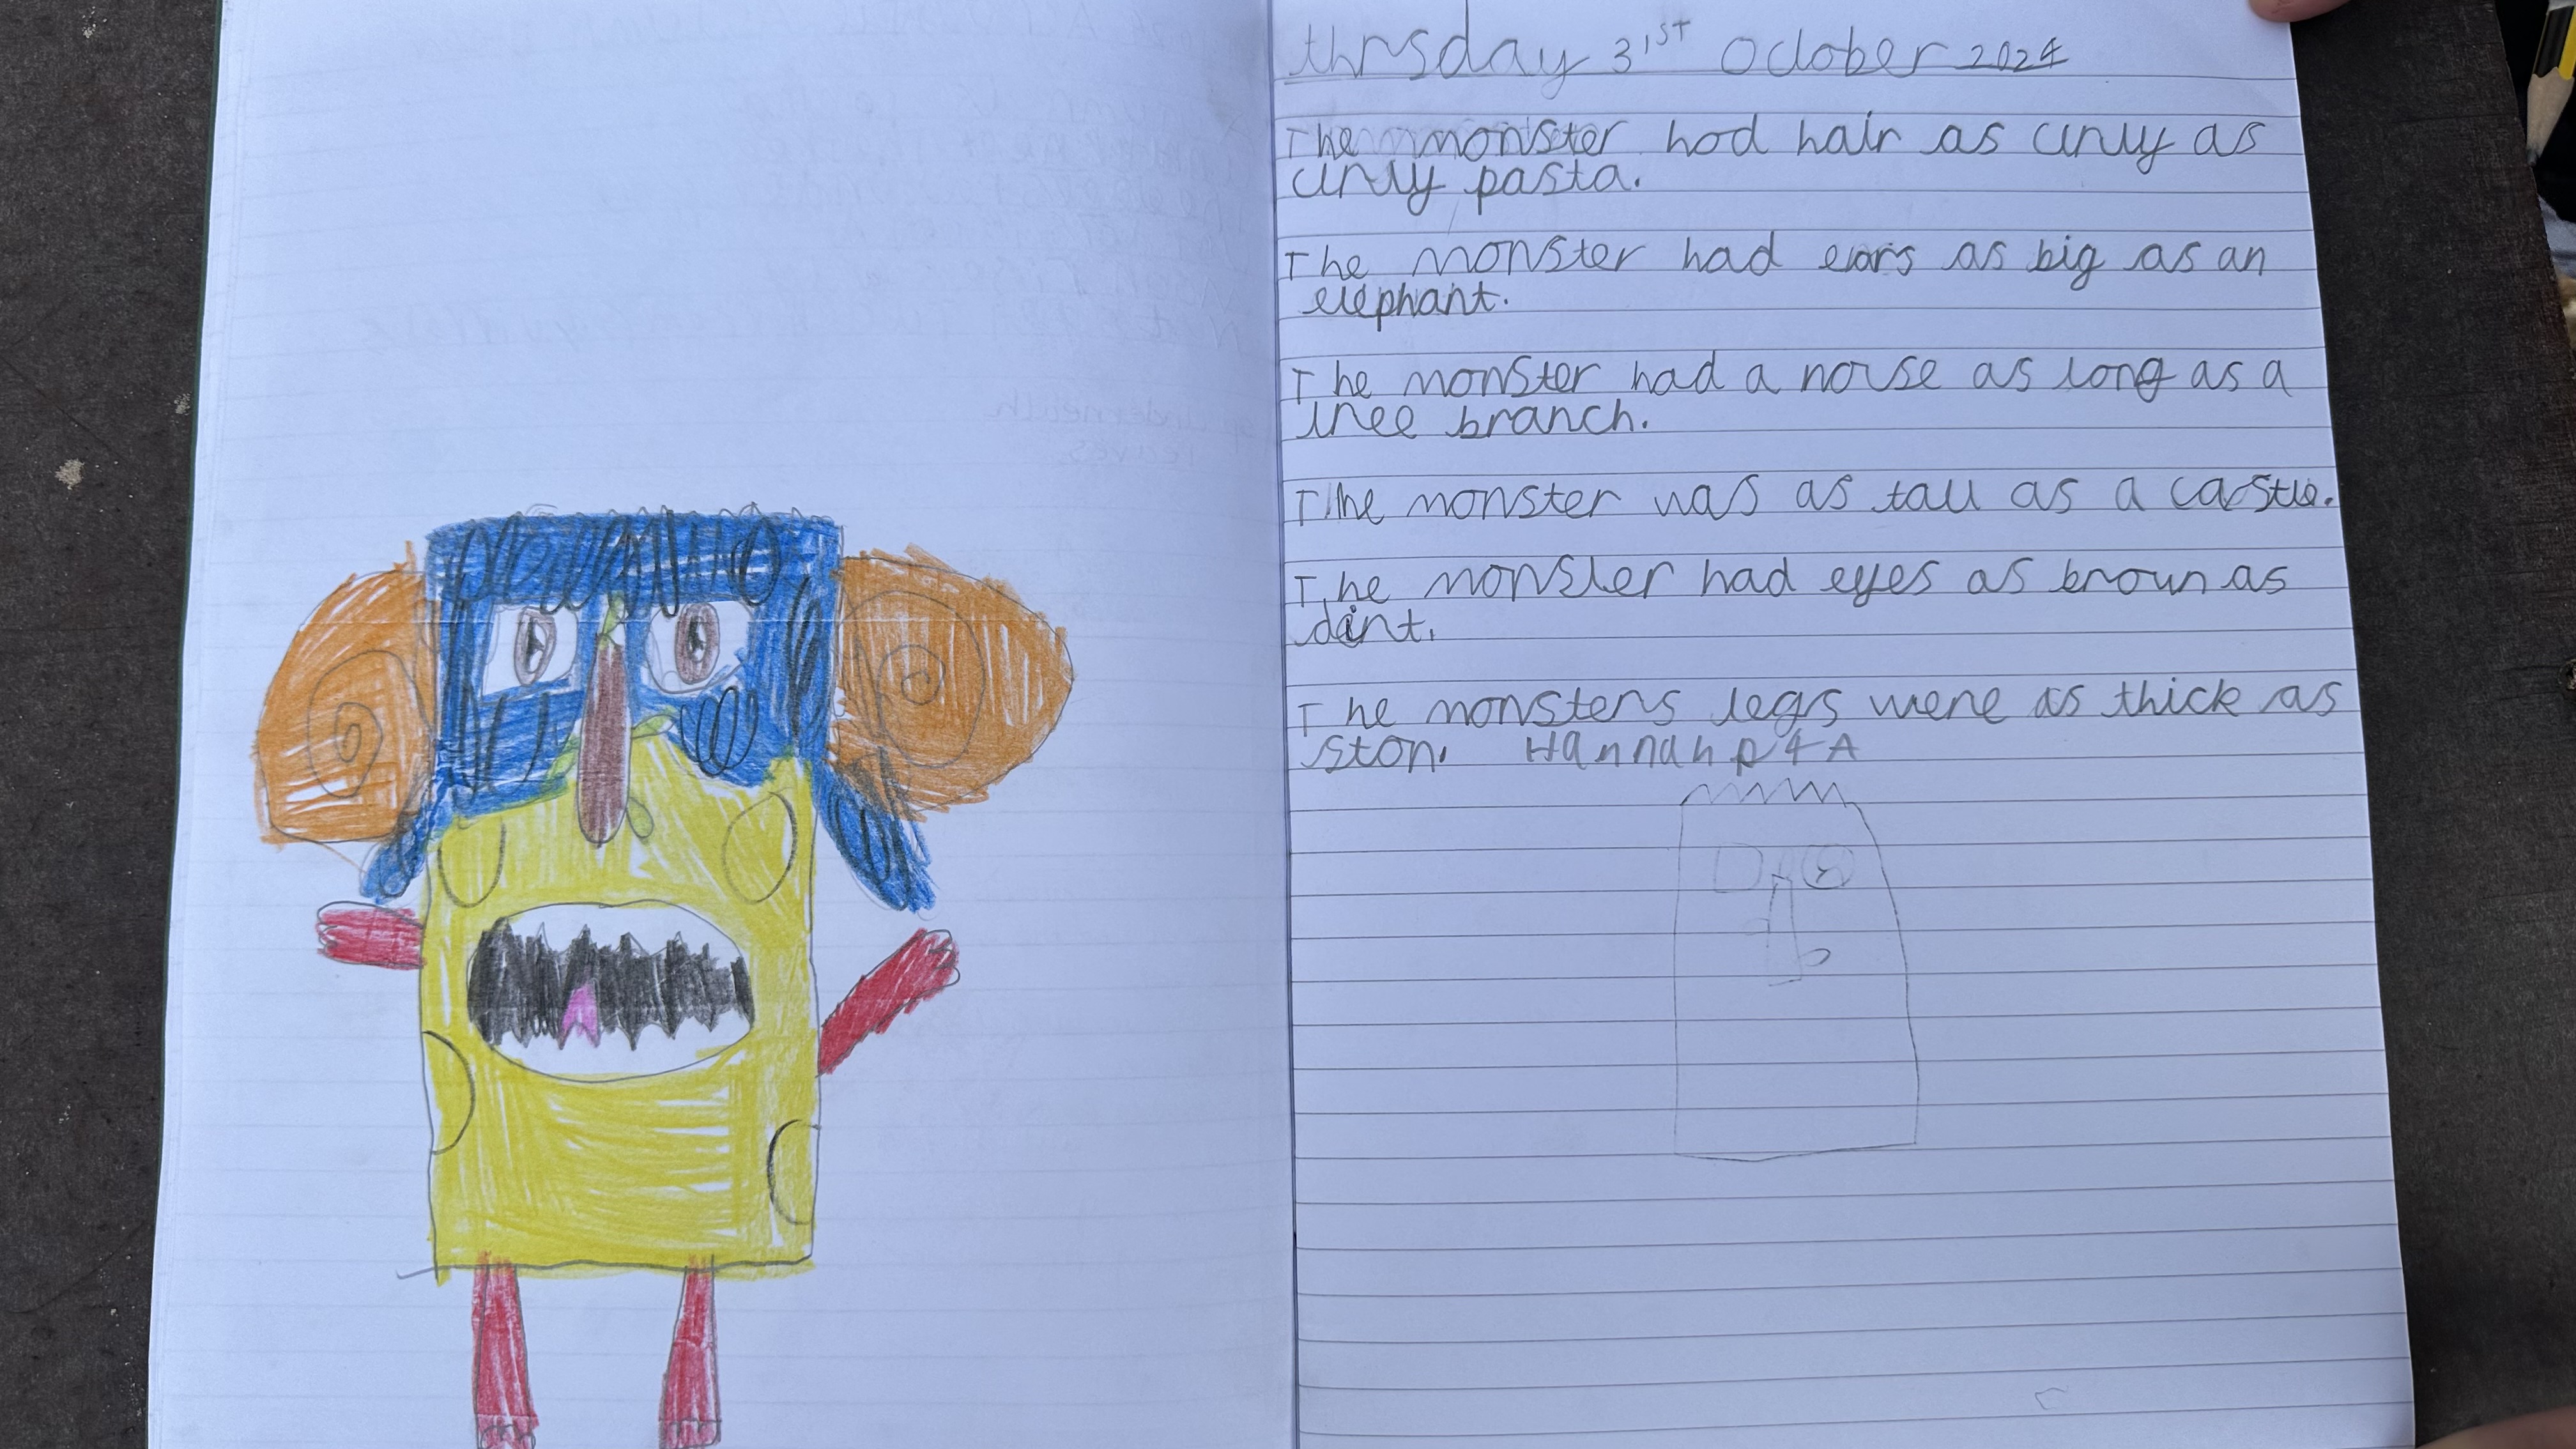 thrsday 31ST October 2024
The monster had hair as curly as
curly pasta.
The monster had ears as big as an
elephant.
The monster had a norse as long as a
tree branch.
The monster was as tall as a castle.
The monster had eyes as brown as
dirt.
The monsters legs were as thick as
ston. Hannah p4A